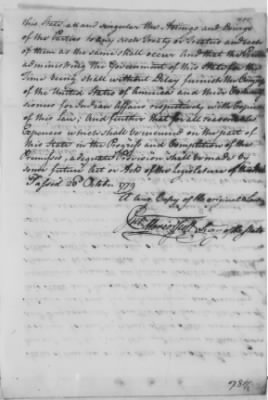 this State, all and singular the Actings and Doings
of the Parties to any such Treaty or Treaties and each
of them as the same shall occur And that the Person
administring the Government of this State for the
Time being shall without Delay furnish the Congress
of the United States of America and their Commis
sioners for Indian Affairs respectively with Copies
of this Law; And further that for all reasonable
Expences which shall be incurred on the part of
this State in the Progress and Completion of the
Premisses, adequate Provision shall be made by
some future Act or Acts of the Legislature of
Passed 23d Octobr. 1779
A true Copy of the original
Robt. Harpur Secry of the State